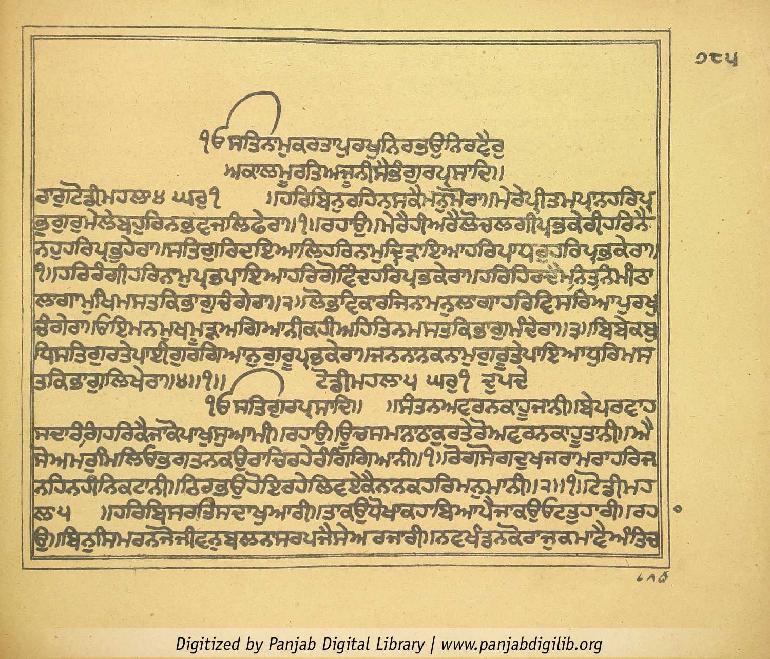 ੭੮੫
੧ੳ ਸਤਿਨਾਮੁਕਰਤਾਪੁਰਖੁਨਿਰਭਉਨਿਰਵੈਰੁ
ਅਕਾਲਮੂਰਤਿਅਜੂਨੀਸੈਭੰਗੁਰਪ੍ਰਸਾਦਿ॥
ਰਾਗੁਟੋਡੀਮਹਲਾ੪ ਘਰੁ੧ ॥ਹਰਿਬਿਨੁਰਹਿਨਸਕੈਮਨੁਮੋਰਾ॥ਮੇਰੇਪ੍ਰੀਤਮਪ੍ਰਾਨਹਰਿਪ੍ਰ
ਭੁਗੁਰੁਮੇਲੇਬਹੁਰਿਨਭਵਜਲਿਫੇਰਾ॥੧॥ਰਹਾਉ॥ਮੇਰੈਹੀਅਰੈਲੋਚਲਗੀਪ੍ਰਭਕੇਰੀਹਰਿਨੈ
ਨਹੁਹਰਿਪ੍ਰਭਹੇਰਾ॥ਸਤਿਗੁਰਿਦਇਆਲਿਹਰਿਨਾਮੁਦ੍ਰਿੜਾਇਆਹਰਿਪਾਧਰੁਹਰਿਪ੍ਰਭਕੇਰਾ॥
੧॥ਹਰਿਰੰਗੀਹਰਿਨਾਮੁਪ੍ਰਭਪਾਇਆਹਰਿਗੋਵਿੰਦਹਰਿਪ੍ਰਭਕੇਰਾ॥ਹਰਿਹਿਰਦੈਮਨਿਤਨਿਮੀਠਾ
ਲਾਗਾਮੁਖਿਮਸਤਕਿਭਾਗੁਚੰਗੇਰਾ॥੨॥ਲੋਭਵਿਕਾਰਜਿਨਾਮਨੁਲਾਗਾਹਰਿਵਿਸਰਿਆਪੁਰਖੁ
ਚੰਗੇਰਾ॥ਓਇਮਨਮੁਖਮੂੜਅਗਿਆਨੀਕਹੀਅਹਿਤਿਨਮਸਤਕਿਭਾਗੁਮੰਦੇਰਾ॥੩॥ਬਿਬੇਕਬੁ
ਧਿਸਤਿਗੁਰਤੇਪਾਈਗੁਰਗਿਆਨੁਗੁਰੂਪ੍ਰਭਕੇਰਾ॥ਜਨਨਾਨਕਨਾਮੁਗੁਰੂਤੇਪਾਇਆਧੁਰਿਮਸ
ਤਕਿਭਾਗੁਲਿਖੇਰਾ॥੪॥੧॥ ਟੋਡੀਮਹਲਾ੫ ਘਰੁ੧ ਦੁਪਦੇ
੧ੳ ਸਤਿਗੁਰਪ੍ਰਸਾਦਿ॥ ॥ਸੰਤਨਅਵਰਨਕਾਹੂਜਾਨੀ॥ਬੇਪਰਵਾਹ
ਸਦਾਰੰਗਿਹਰਿਕੈਜਾਕੋਪਾਖੁਸੁਆਮੀ॥ਰਹਾਉ॥ਊਚਸਮਾਨਠਾਕੁਰਤੇਰੋਅਵਰਨਕਾਹੂਤਾਨੀ॥ਐ
ਸੋਅਮਰੁਮਿਲਿਓਭਗਤਨਕਉਰਾਚਿਰਹੇਰੰਗਿਗਿਆਨੀ॥੧॥ਰੋਗਸੋਗਦੁਖਜਰਾਮਰਾਹਰਿਜ
ਨਹਿਨਹੀਨਿਕਟਾਨੀ॥ਨਿਰਭਉਹੋਇਰਹੇਲਿਵਏਕੈਨਾਨਕਹਰਿਮਨੁਮਾਨੀ॥੨॥੧॥ਟੋਡੀਮਹ
ਲਾ੫ ॥ਹਰਿਬਿਸਰਤਸਦਾਖੁਆਰੀ॥ਤਾਕਉਧੋਖਾਕਹਾਬਿਆਪੈਜਾਕਉਓਟਤੁਹਾਰੀ॥ਰਹਾ
ਉ॥ਬਿਨੁਸਿਮਰਨਜੋਜੀਵਨੁਬਲਨਾਸਰਪਜੈਸੇਅਰਜਾਰੀ॥ਨਵਖੰਡਨਕੋਰਾਜੁਕਮਾਵੈਅੰਤਿਚ
Digitized by Panjab Digital Library | www.panjabdigilib.org